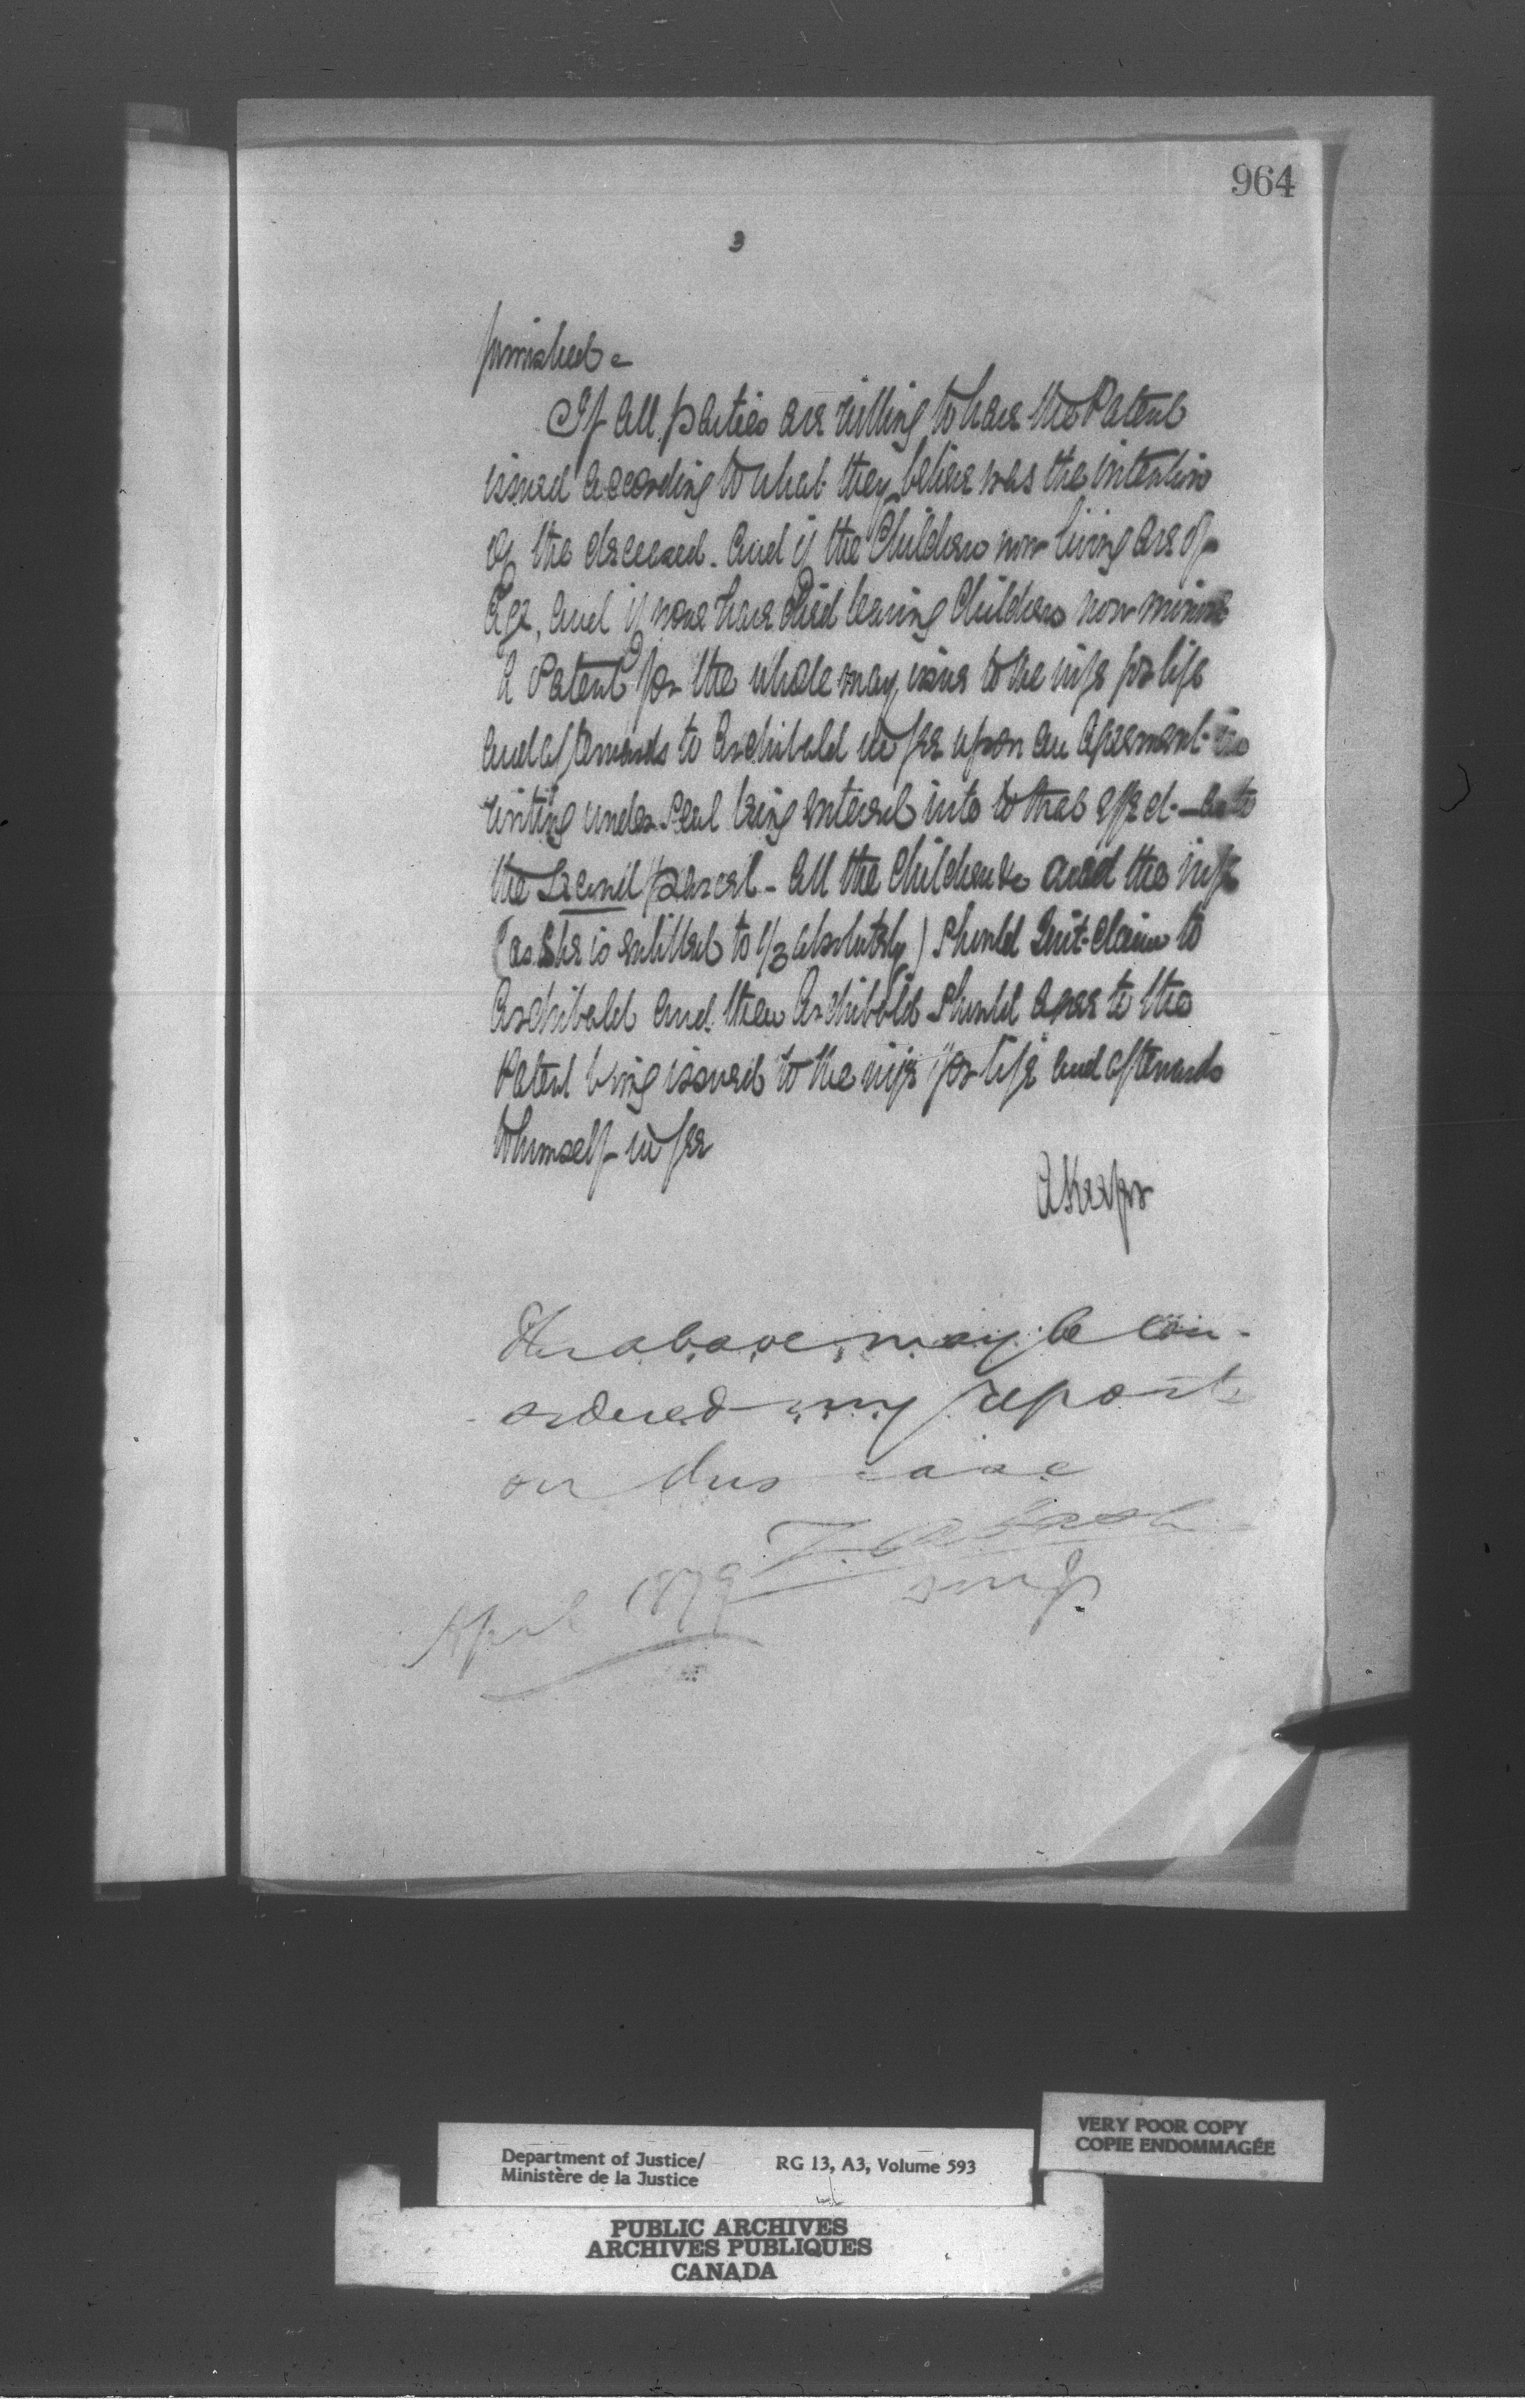 964
3
furnished -
If all parties are willing to have the Patent
issued according to what they believe was the intention
of the deceased. And if the Children now living are of
Age, And if none have died leaving Children now minors
A Patent for the whole may issue to the wife for life
And afterwards to Archibald in fee upon an Agreement in
writing under Seal being entered into to that effect - As to
the Second parcel - All the Children &c and the wife
(as She is entitled to 1/3 absolutely) Should Quit-claim to
Archibald And then Archibald Should Agree to the
Patent being issued to the wife for life And afterwards
to himself in fee
The above may be con-
-sidered my report
on this case
April 1879
VERY POOR COPY
COPIE ENDOMMAGÉE
Department of Justice/ RG 13, A3, Volume 593
Ministère de la Justice
PUBLIC ARCHIVES
ARCHIVES PUBLIQUES
CANADA